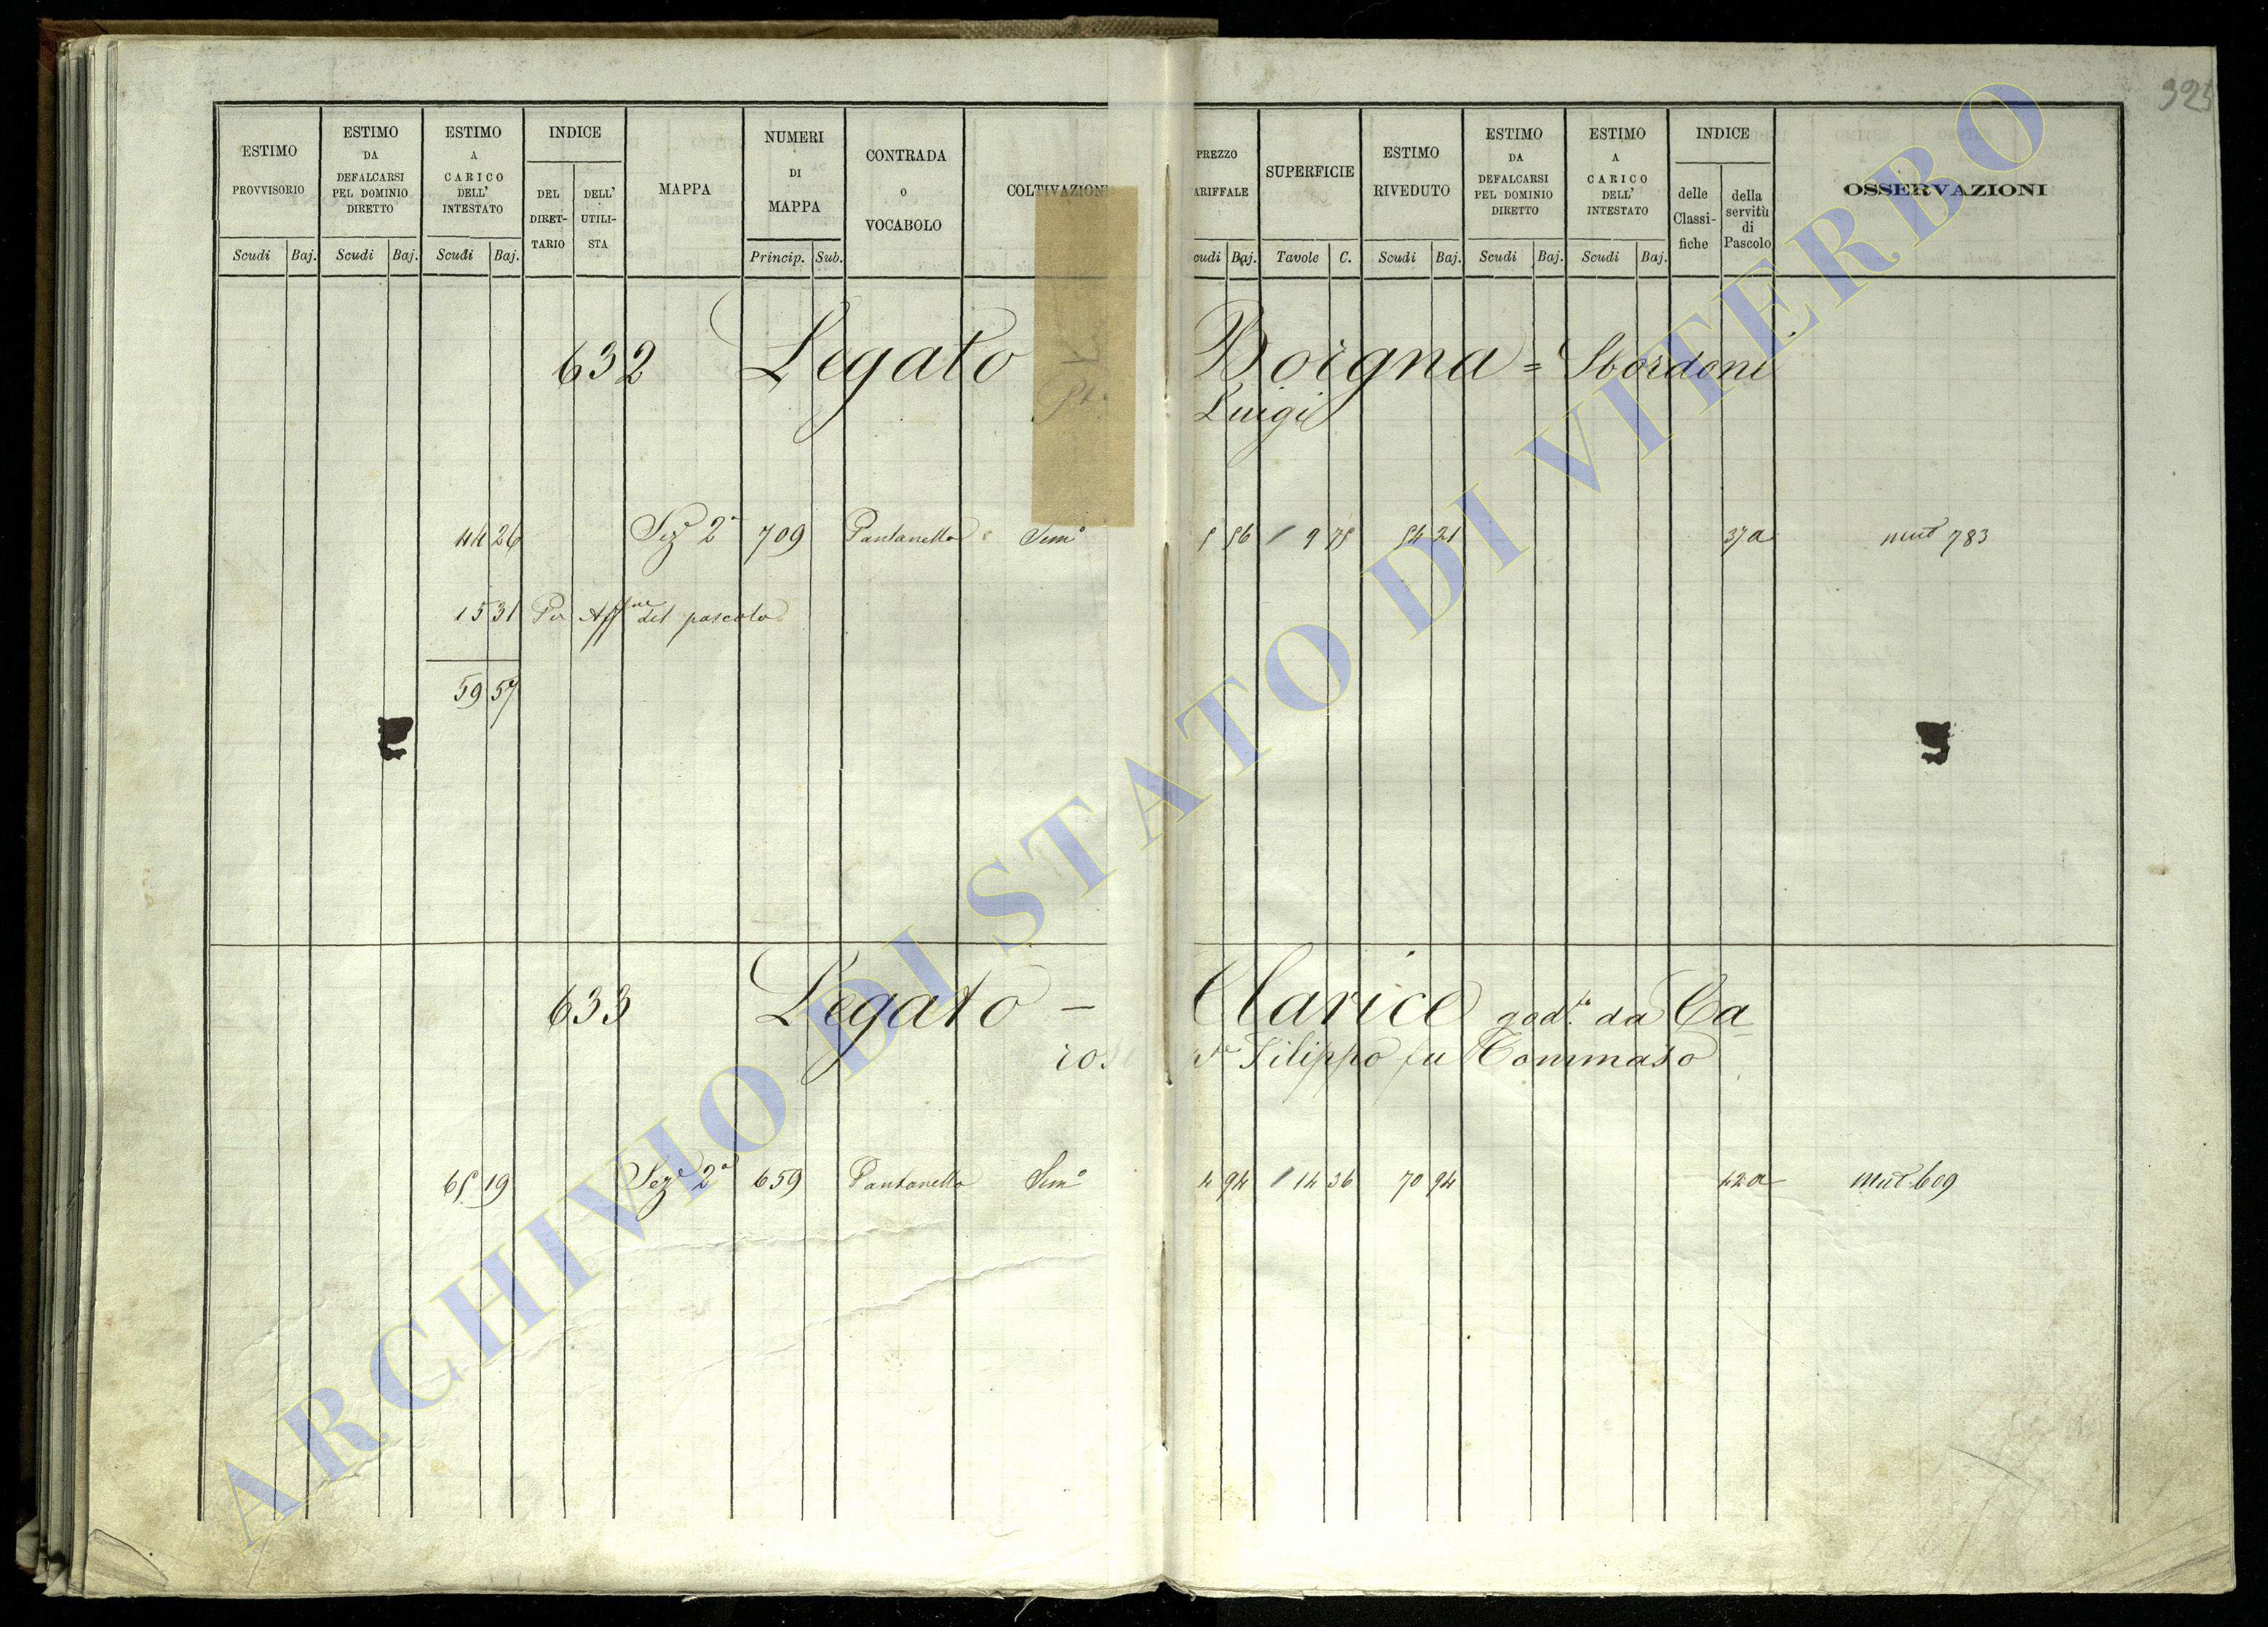 325
ESTIMO PROVVISORIO
Scudi Baj.
ESTIMO DA DEFALCARSI PEL DOMINIO DIRETTO
Scudi Baj.
ESTIMO A CARICO DELL' INTESTATO
Scudi Baj.
INDICE
DEL DIRET-TARIO
DELL' UTILI-STA
MAPPA
NUMERI DI MAPPA
Princip. Sub.
CONTRADA o VOCABOLO
COLTIVAZION
PREZZO ARIFFALE
cudi Baj.
SUPERFICIE
Tavole C.
ESTIMO RIVEDUTO
Scudi Baj.
ESTIMO DA DEFALCARSI PEL DOMINIO DIRETTO
Scudi Baj.
ESTIMO A CARICO DELL' INTESTATO
Scudi Baj.
INDICE
delle Classi-fiche
della servitù di Pascolo
OSSERVAZIONI
632 Legato Boigna = Sbordoni
Luigi
44 26 Sez.e 2a 709 Pantanella Sem.o 5 56 9 75 54 21 37a mut 783
15 31 Per Aff.ne del pascolo
59 57
633 Legato - Clarice god.to da Ca=
Filippo fu Tommaso
65 19 Sez.e 2a 659 Pantanella Sem.o 4 94 14 36 70 94 42a mut 609
ARCHIVIO DI STATO DI VITERBO